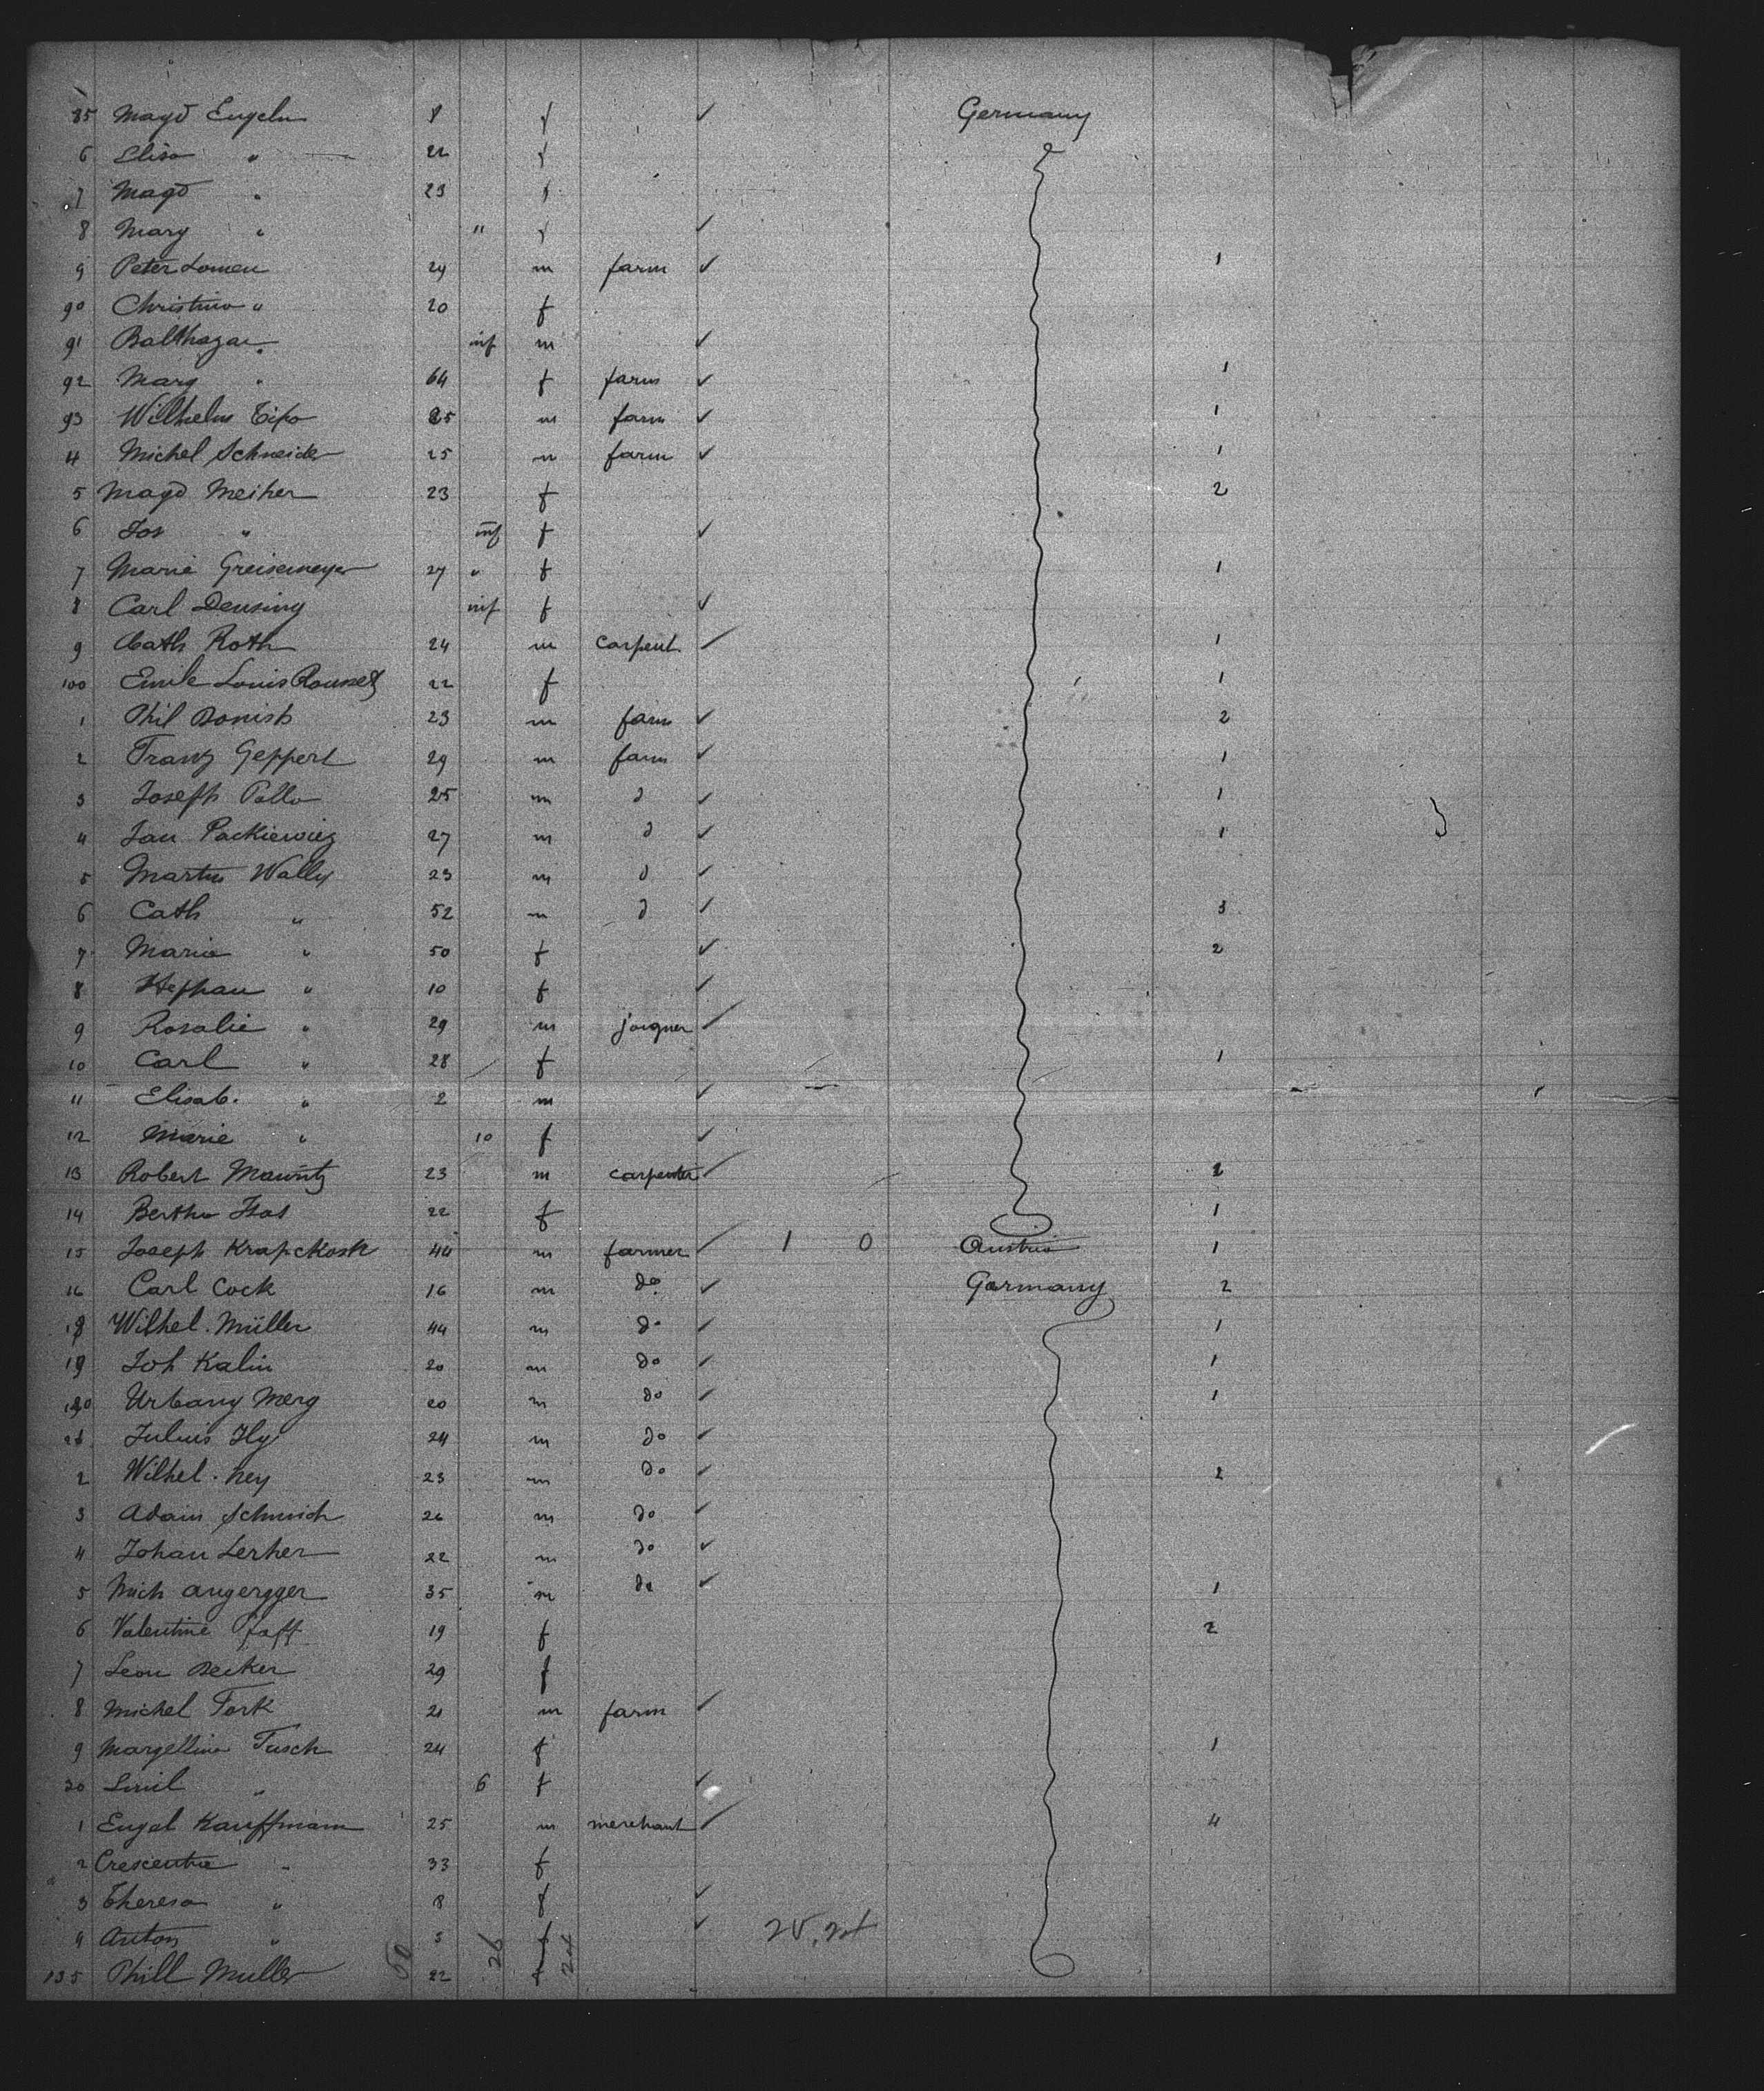 85 Magd Engeln 8 f ✓ Germany
6 Elisa " 22 f
7 Magd " 23 f
8 Mary " " f ✓
9 Peter Lomen 29 m farm ✓ 1
90 Christina " 20 f
91 Balthazar " inf m ✓
92 Marg " 64 f farm ✓ 1
93 Wilhelm 25 m farm ✓ 1
4 Michel Schneider 25 m farm ✓ 1
5 Magd Meiher 23 f 2
6 Jos " inf f ✓
7 Marie Greisemeyer 27 " f 1
8 Carl Deusing inf f ✓
9 Cath Roth 24 m carpent. ✓ 1
100 Emile Louis 22 f 1
1 Phil Donish 23 m farm ✓ 2
2 Franz Geppert 29 m farm ✓ 1
3 Joseph Pollo 25 m d ✓ 1
4 Jan Packiewicz 27 m d ✓ 1
5 Martin Wally 23 m d ✓
6 Cath " 52 m d ✓ 3
7 Maria " 50 f ✓ 2
8 Stephan " 10 f ✓
9 Rosalie " 29 m joigner ✓
10 Carl " 28 f 1
11 Elisab. " 2 m ✓
12 Marie " 10 f ✓
13 Robert Mauritz 23 m carpenter ✓ 2
14 Bertha 22 f 1
15 Joseph Krapckosk 44 m farmer ✓ 1 0 Austria 1
16 Carl Cock 16 m do ✓ Germany 2
18 Wilhel. Müller 44 m do ✓ 1
19 Joh Kalin 20 m do ✓ 1
120 Urbany Merg 20 m do ✓ 1
21 Julius Ily 24 m do ✓
2 Wilhel. Ney 23 m do ✓ 2
3 Adam Schmich 26 m do ✓
4 Johan Lerher 22 m do ✓
5 Mich Angergger 35 m do ✓ 1
6 Valentine Pfaff 19 f 2
7 Leon Becker 29 f
8 Michel Fork 21 m farm ✓
9 Margellina Tusch 24 f 1
30 " 6 f ✓
1 Engel Kauffmann 25 m merchant ✓ 4
2 Crescentia " 33 f
3 Theresa " 8 f ✓
4 Anton " 3 f ✓
135 Phill Muller 50 22 26 f 24